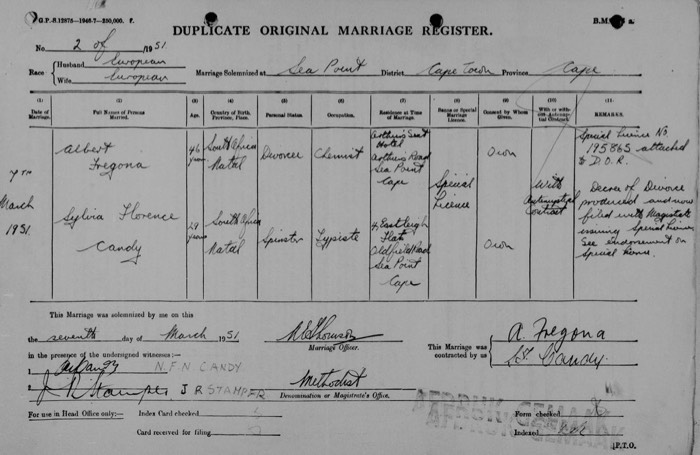 G.P.-S.12875—1946-7—250,000. F.
B.M.
DUPLICATE ORIGINAL MARRIAGE REGISTER.
No. 2 of /1951
Race Husband European
Wife European
Marriage Solemnized at Sea Point District Cape Town Province Cape
(1) (2) (3) (4) (5) (6) (7) (8) (9) (10) (11)
Date of Marriage. Full Names of Persons Married. Age. Country of Birth, Province, Place. Personal Status. Occupation. Residence at Time of Marriage. Banns or Special Marriage Licence. Consent by Whom Given. With or without Antenuptial Contract. REMARKS.
7th March 1951
Albert Tregona 46 years South Africa Natal Divorcee Chemist Arthur's Seat Hotel Arthurs Road Sea Point Cape
Special Licence
Own
With Antenuptial Contract
Special Licence No. 195865 attached to D.O.R.
Sylvia Florence Candy 29 years South Africa Natal Spinster Typiste 4 Eastleigh Flat Oldfield Road Sea Point Cape
Own
Decree of Divorce produced and now filed with Magistrate issuing Special Licence. See endorsement on Special Licence.
This Marriage was solemnized by me on this
the seventh day of March 1951
Marriage Officer.
This Marriage was contracted by us
A. Tregona
S.F. Candy.
in the presence of the undersigned witnesses:—
1 N.F.N CANDY
2 J R Stamper J R STAMPER
Methodist
Denomination or Magistrate's Office.
For use in Head Office only:— Index Card checked
Form checked
Card received for filing
Indexed
P.T.O.